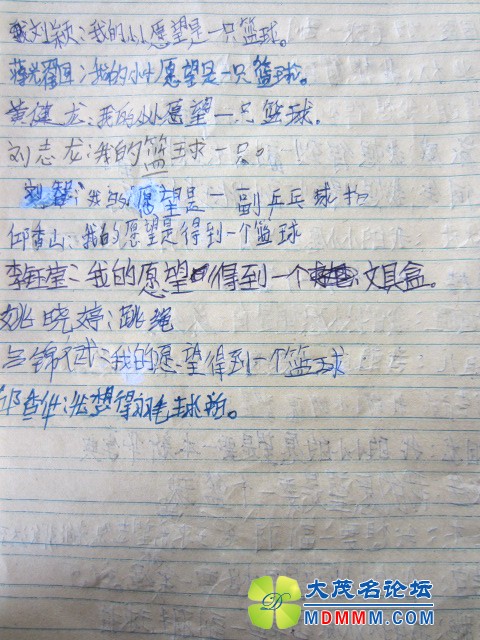 刘颖:我的小小愿望是一只篮球。
蒋光 :我的小小愿望是一只篮球。
黄健龙:我的小小愿望一只篮球.
刘志龙:我的篮球一只。
刘 :我的愿望是一副乒乓球拍
邱香山:我的愿望是得到一个篮球
李钰莹:我的愿望 得到一个 文具盒。
姚晓婷:跳绳
锦斌:我的愿望得到一个篮球
邱香 : 想得羽毛球拍。
大茂名论坛
MDMMM.COM